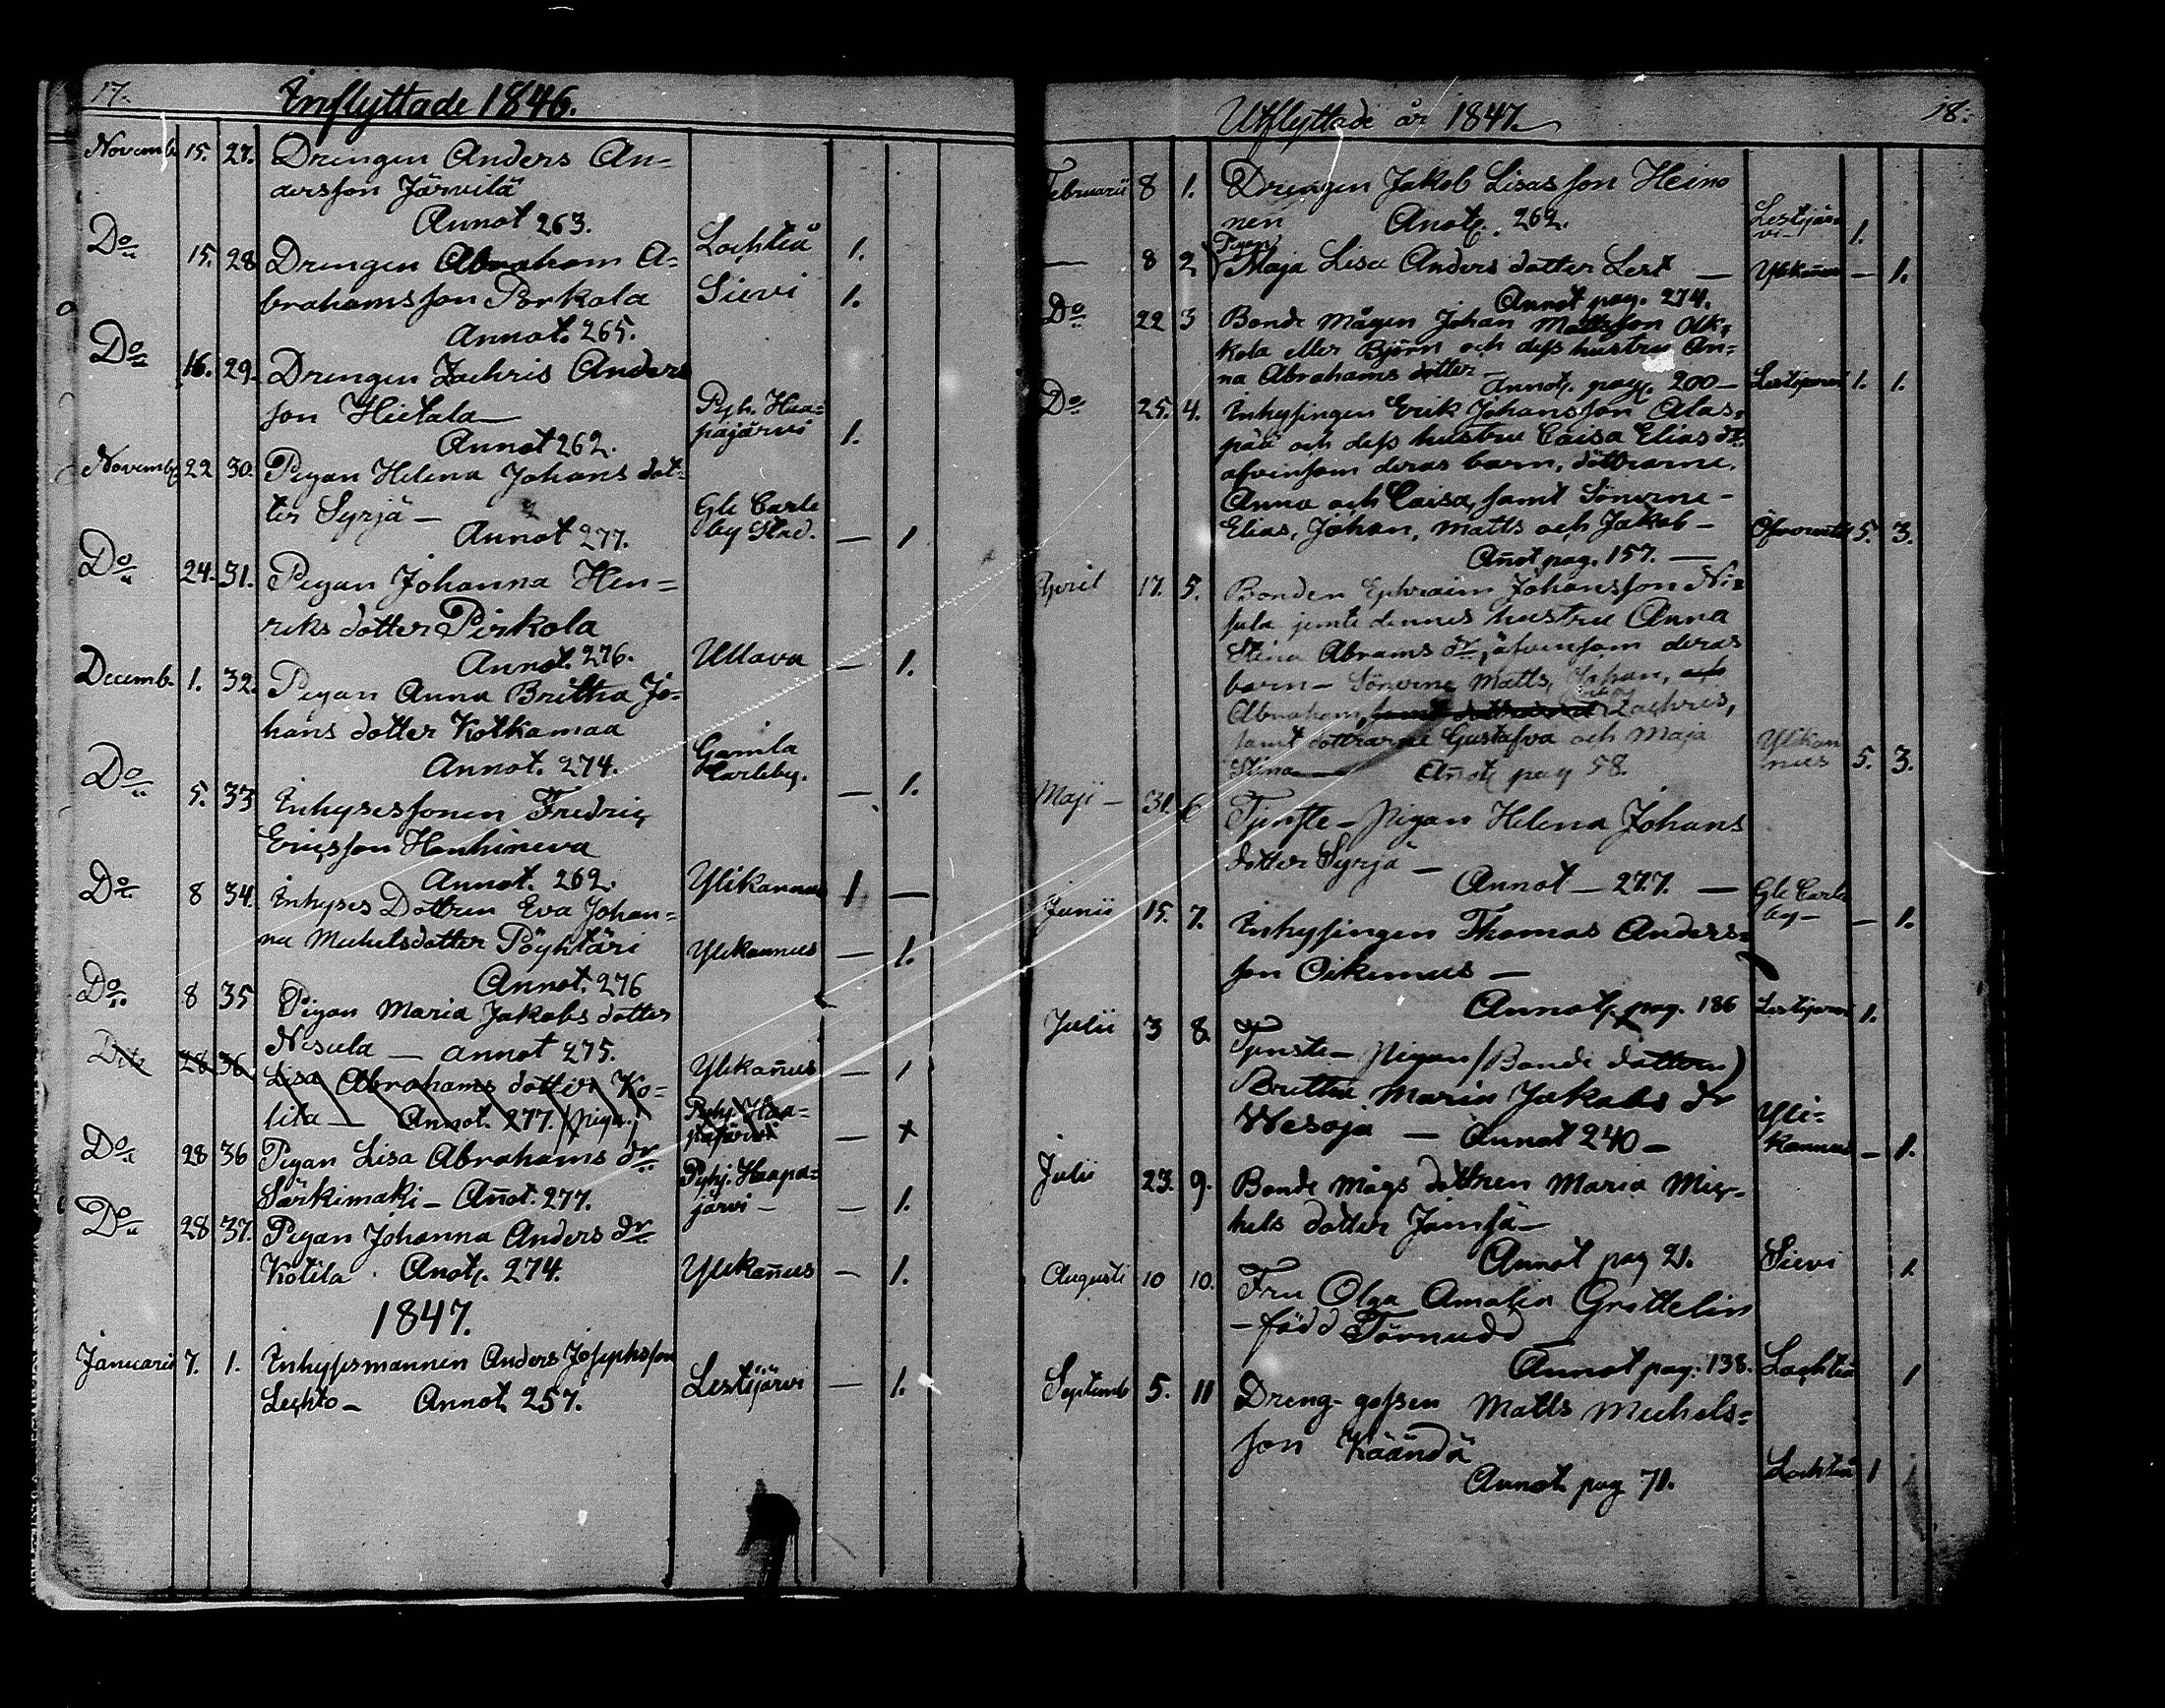 17.
Inflyttade 1846.
Novemb. 15. 27. Drengen Anders An=
dersson Järvilä
Annot 263. Lochteå 1.
Do 15. 28 Drengen Abraham A=
brahamsson Porkola Sievi 1.
Annot. 265.
Do 16. 29. Drengen Zachris Anders
son Hietala — Pyh. Haa=
pajärvi 1.
Annot 262.
Novemb. 22 30. Pigan Helena Johans dot=
ter Syrjä — Gle Carle
by Stad. — 1
Annot 277.
Do 24. 31. Pigan Johanna Hen=
riks dotter Pirkola
Annot. 276. Ullava — 1.
Decemb. 1. 32. Pigan Anna Britha Jo=
hans dotter Kotkamaa
Annot. 274. Gamla
Carleby. — 1.
Do 5. 33 Inhysessonen Fredric
Ericsson Honhineva
Annot. 262. Ylikannus 1 —
Do 8 34. Inhyses Dottren Eva Johan=
na Michelsdotter Pöyhtäri Ylikannus — 1.
Annot. 276
Do 8 35 Pigan Maria Jakobs dotter
Nisula — annot 275. Ylikan̄us — 1
Dito 28 36 Lisa Abrahams dotter Ko=
lita — Annot. 277. (piga) Pyhj. Haa=
pajärvi — 1
Do 28 36 Pigan Lisa Abrahams dr
Särkimaki — An̄ot. 277. Pyhj. Haapa=
järvi — — 1.
Do 28 37. Pigan Johanna Anders dr
Kotila Anot. 274. Ylikan̄us — 1.
1847.
Januarii 7. 1. Inhysesmannen Anders Josephsson
Lechto — Annot. 257. Lestijärvi — 1.
18.
Utflyttade år 1847.
Februarii 8 1. Drengen Jakob Lisasson Heino
nen Anot. 262. Lestijär=
vi — 1.
— 8 2 Pigan Maja Lisa Anders dotter Lest — Ylikan̄us — 1.
Annot pag. 274.
Do 22 3 Bonde Mågen Johan Mattsson Olk=
kola eller Björn och dess hustru An=
na Abrahams dotter —
Annot. pag. 200 — Lestijärvi 1. 1.
Do 25. 4. Inhysingen Erik Johansson Alas=
pää och dess hustru Caisa Elias dr
afvensom deras barn, döttrarne
Anna och Caisa, samt Sönerne —
Elias, Johan, Matts och Jakob — 5. 3.
An̄ot pag. 157. —
April 17. 5. Bonden Ephraim Johansson Ni=
sula jemte dennes hustru Anna
Stina Abrams dr, äfvensom deras
barn — Sönerne Matts, Johan, och
Abraham, Zachris,
samt döttrarne Gustafva och Maja
Stina An̄ot pag 58. Ylikan
nus 5. 3.
Maji — 31. 6 Tjenste — Pigan Helena Johans
dotter Syrjä —
Annot — 277. — Gle Carle
by — — 1.
Junii 15. 7. Inhysingen Thomas Anders=
son Oikemus —
Annot. pag. 186 Lestijärvi 1.
Julii 3 8. Tjenste — Pigan (Bonde dottren)
Britta Maria Jakobs dr
Wesoja — Annot 240 — Yli=
kannus — 1.
Julii 23. 9. Bonde Mågs dottren Maria Mic=
hels dotter Jämsä —
Annot pag 21. Sievi 1
Augusti 10 10. Fru Olga Amalia Grottelin
— född Törnudd
Annot pag. 138. Lochteå 1
Septemb 5. 11 Dreng-gossen Matts Michels=
son Käändä
Annot. pag 71. Lochteå 1